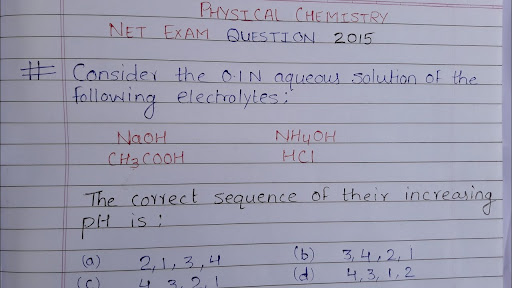 PHYSICAL CHEMISTRY
NET EXAM QUESTION 2015
# Consider the 0.1N aqueous solution of the
following electrolytes:
NaOH NH4OH
CH3COOH HCl
The correct sequence of their increasing
pH is :
(a) 2,1,3,4 (b) 3,4,2,1
(c) 4 3, 2, 1 (d) 4,3,1,2